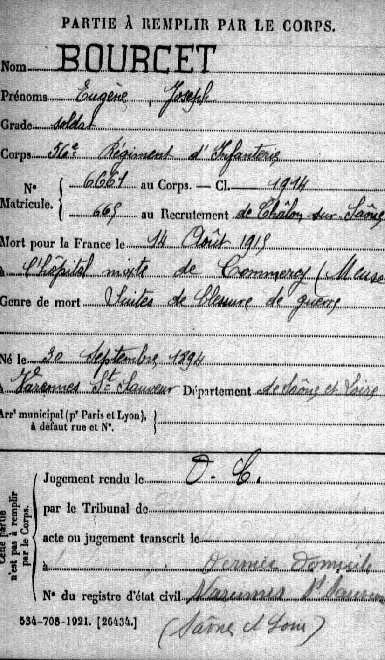 PARTIE À REMPLIR PAR LE CORPS.
Nom BOURCET
Prénoms Eugène Joseph
Grade soldat
Corps 56e Régiment d'Infanterie
N° Matricule. { 6661 au Corps. — Cl. 1914
665 au Recrutement de Châlon sur Saône
Mort pour la France le 14 Août 1915
à l'hôpital mixte de Commercy (Meuse
Genre de mort Suites de blessure de guerre
Né le 30 Septembre 1894
à Varennes St Sauveur Département de Saône et Loire
Arrt municipal (pr Paris et Lyon), à défaut rue et N°. }
Cette partie n'est pas à remplir par le Corps.
Jugement rendu le D. C.
par le Tribunal de
acte ou jugement transcrit le
à Dernier Domicile
N° du registre d'état civil Varennes St Sauveur
534-708-1921. [26434.]
(Saône et Loire)